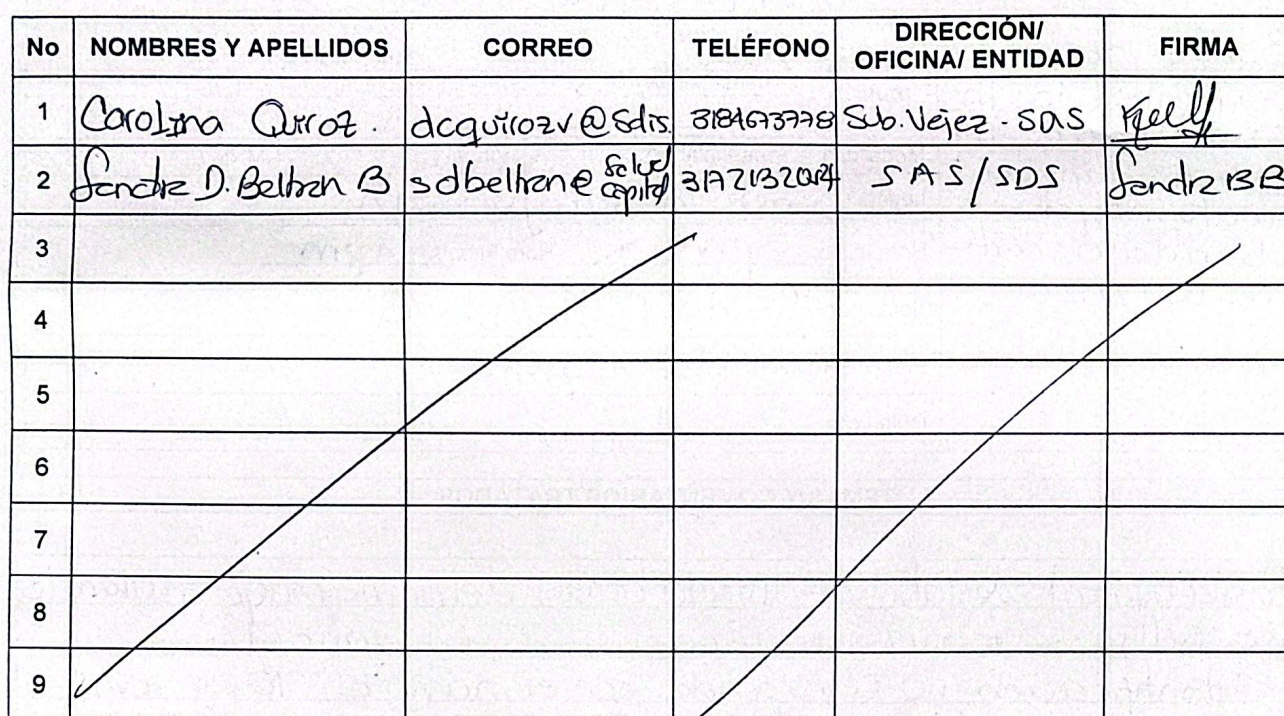 No NOMBRES Y APELLIDOS CORREO TELÉFONO DIRECCIÓN/ OFICINA/ ENTIDAD FIRMA
1 Carolina Quiroz. dcquirozv@sdis. 3184673778 Sub. Vejez - SDS
2 Sandra D. Beltran B sdbeltran@ salud capital SAS/SDS Sandra BB
3
4
5
6
7
8
9